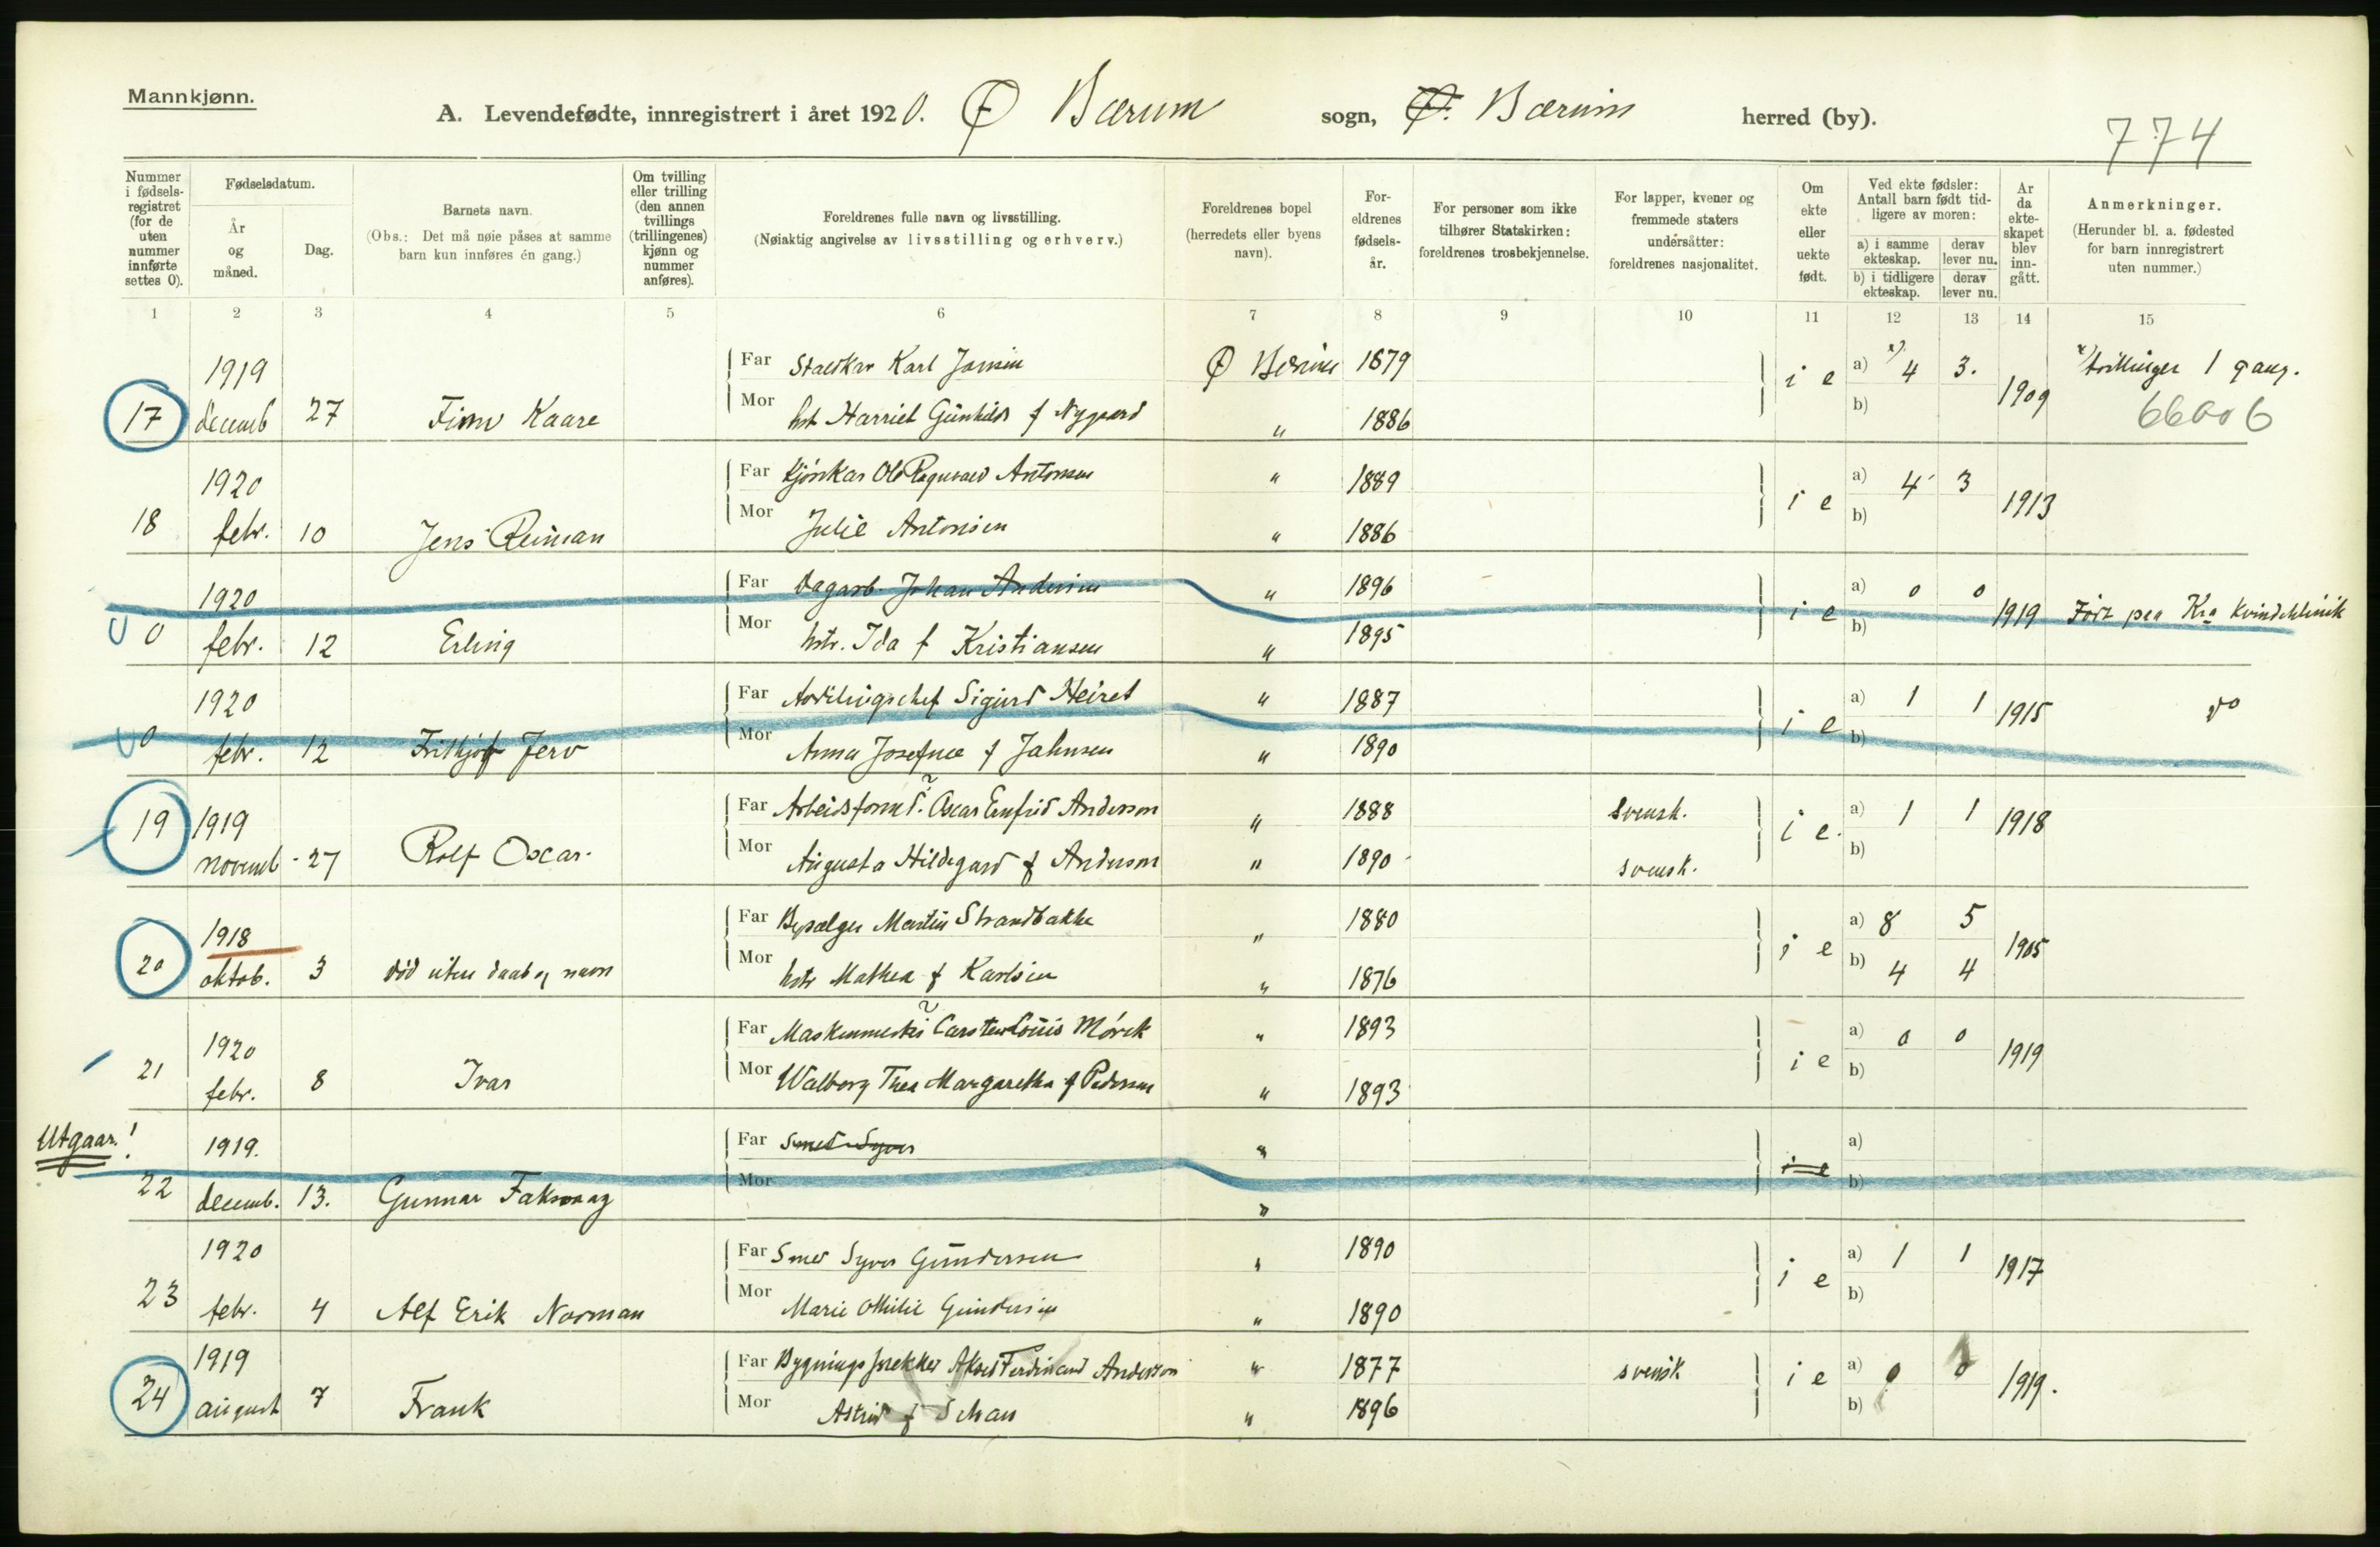 Mannkjønn.
A. Levendefødte, innregistrert i året 1920. Ø Bærum sogn, Ø. Bærum herred (by).
774
Nummer i fødsels-registret (for de uten nummer innførte settes 0).
Fødselsdatum.
År og måned.
Dag.
Barnets navn.
(Obs.: Det må nøie påses at samme barn kun innføres én gang.)
Om tvilling eller trilling (den annen tvillings (trillingenes) kjønn og nummer anføres).
Foreldrenes fulle navn og livsstilling.
(Nøiaktig angivelse av livsstilling og erhverv.)
Foreldrenes bopel (herredets eller byens navn).
For-eldrenes fødsels-år.
For personer som ikke tilhører Statskirken: foreldrenes trosbekjennelse.
For lapper, kvener og fremmede staters undersåtter: foreldrenes nasjonalitet.
Om ekte eller uekte født.
Ved ekte fødsler: Antall barn født tid-ligere av moren:
a) i samme ekteskap. derav lever nu.
b) i tidligere ekteskap. derav lever nu.
Ar da ekte-skapet blev inn-gått.
Anmerkninger.
(Herunder bl. a. fødested for barn innregistrert uten nummer.)
1 2 3 4 5 6 7 8 9 10 11 12 13 14 15
1919 Far Karl Jonsen Ø Bærum 1879 i e a) x) 4 3. x) tvillinger 1 gang.
17 decemb 27 Finn Kaare Mor hst Harriet Gunhild f Nygaard " 1886 b) 1909 66006
1920 Far Ole Ragnvald Antonsen " 1889 i e a) 4 3
18 febr. 10 Jens Reiman Mor Julie Antonsen " 1886 b) 1913
1920 Far Dagarb. Johan Andersen " 1896 i e a) 0 0
0 febr. 12 Erling Mor hstr. Ida f Kristiansen " 1895 b) 1919 Født paa Kra Kvindeklinik
1920 Far Avdelingschef Sigurd Heiret " 1887 i e a) 1 1 1915 do
0 febr. 12 Frithjof Jerv Mor Anna Josefine f Jahnsen " 1890 b)
19 1919 Far Arbeidsform. Oscar Enfrid Andersson " 1888 svensk. i e. a) 1 1 1918
novemb 27 Rolf Oscar. Mor Augusta Hildegard f Anderson " 1890 svensk. b)
1918 Far Martin Strandbakke " 1880 i e a) 8 5 1905
20 oktob. 3 død uten daab og navn Mor hstr Mathea f Karlsen " 1876 b) 4 4
1920 Far Carsten Louis Mörck " 1893 i e a) 0 0 1919
21 febr. 8 Ivar Mor Walborg Thea Margaretha f Pedersen " 1893 b)
Utgaar!
1919. Far Smed Syver " i e a)
22 decemb. 13. Gunnar Mor " b)
1920 Far Smed Syver Gundersen " 1890 i e a) 1 1 1917
23 febr. 4 Alf Erik Norman Mor Marie Othilie Gundersen " 1890 b)
1919 Far Aksel Ferdinand Andersson " 1877 svensk i e a) 0 0 1919.
24 august 7 Frank Mor Astrid f " 1896 b)